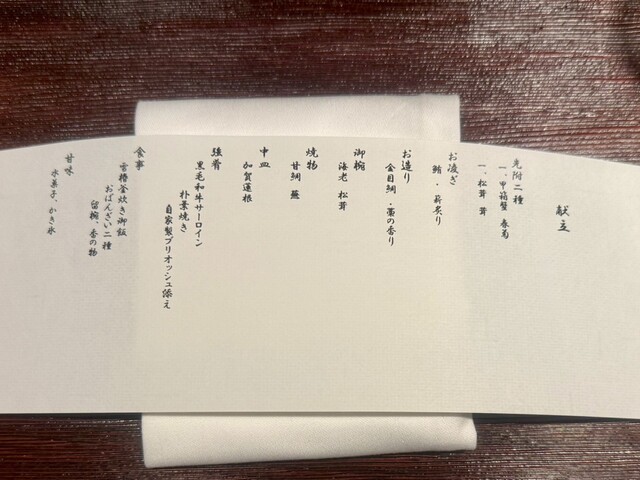 献立
先附二種
一、甲箱蟹 春菊
一、松茸 茸
お凌ぎ
鮪・薪炙り
お造り
金目鯛・藁の香り
御椀
海老 松茸
焼物
甘鯛 蕪
中皿
加賀蓮根
強肴
黒毛和牛サーロイン
朴葉焼き
自家製ブリオッシュ添え
食事
雲櫓釜炊き御飯
おばんざい二種
留椀、香の物
甘味
水菓子、かき氷